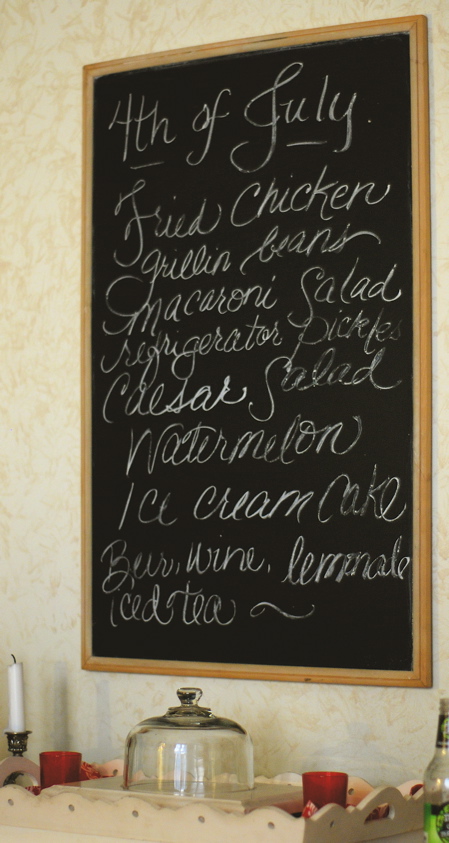 4th of July.
Fried Chicken
grillin beans
macaroni Salad
refrigerator Pickles
Caesar Salad
Watermelon
Ice cream Cake
Beer, wine, lemonade
iced tea ~